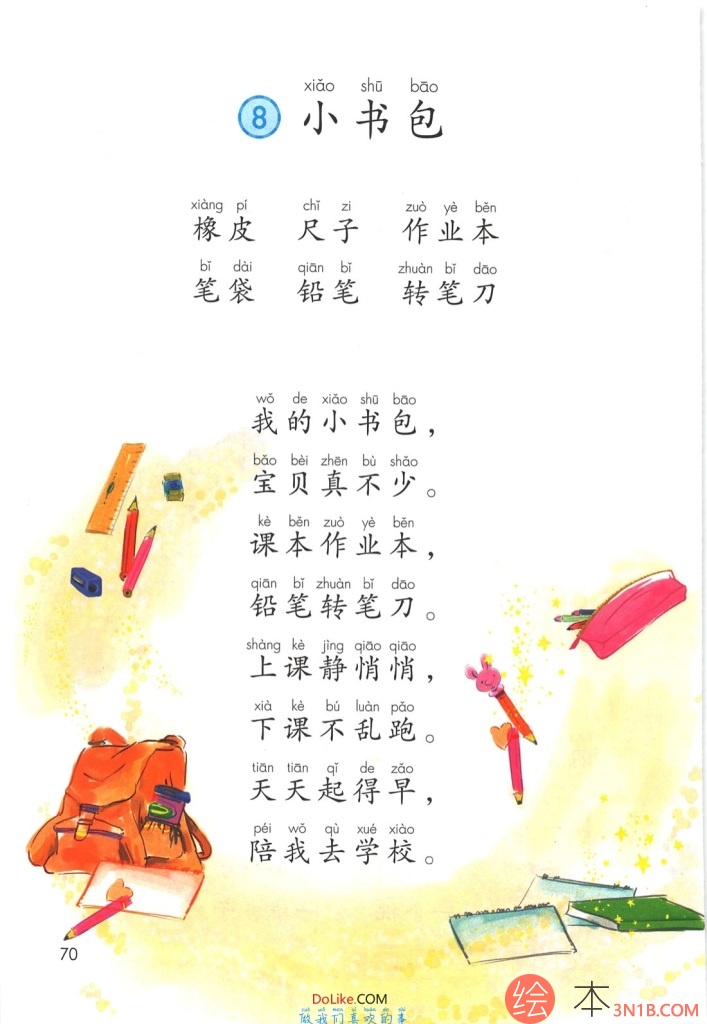 xiǎo shū bāo
8 小书包
xiàng pí chǐ zi zuò yè běn
橡皮 尺子 作业本
bǐ dài qiān bǐ zhuàn bǐ dāo
笔袋 铅笔 转笔刀
wǒ de xiǎo shū bāo
我的小书包，
bǎo bèi zhēn bù shǎo
宝贝真不少。
kè běn zuò yè běn
课本作业本，
qiān bǐ zhuàn bǐ dāo
铅笔转笔刀。
shàng kè jìng qiāo qiāo
上课静悄悄，
xià kè bú luàn pǎo
下课不乱跑。
tiān tiān qǐ de zǎo
天天起得早，
péi wǒ qù xué xiào
陪我去学校。
70
DoLike.COM
做我们喜欢的事
绘本 3N1B.COM